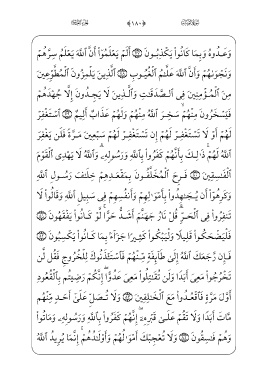 ﴿١٨٠﴾
وَعَدُوهُ وَبِمَا كَانُوا۟ يَكْذِبُونَ ۝ أَلَمْ يَعْلَمُوٓا۟ أَنَّ ٱللَّهَ يَعْلَمُ سِرَّهُمْ
وَنَجْوَىٰهُمْ وَأَنَّ ٱللَّهَ عَلَّٰمُ ٱلْغُيُوبِ ۝ ٱلَّذِينَ يَلْمِزُونَ ٱلْمُطَّوِّعِينَ
مِنَ ٱلْمُؤْمِنِينَ فِى ٱلصَّدَقَٰتِ وَٱلَّذِينَ لَا يَجِدُونَ إِلَّا جُهْدَهُمْ
فَيَسْخَرُونَ مِنْهُمْ سَخِرَ ٱللَّهُ مِنْهُمْ وَلَهُمْ عَذَابٌ أَلِيمٌ ۝ ٱسْتَغْفِرْ
لَهُمْ أَوْ لَا تَسْتَغْفِرْ لَهُمْ إِن تَسْتَغْفِرْ لَهُمْ سَبْعِينَ مَرَّةً فَلَن يَغْفِرَ
ٱللَّهُ لَهُمْ ذَٰلِكَ بِأَنَّهُمْ كَفَرُوا۟ بِٱللَّهِ وَرَسُولِهِۦ وَٱللَّهُ لَا يَهْدِى ٱلْقَوْمَ
ٱلْفَٰسِقِينَ ۝ فَرِحَ ٱلْمُخَلَّفُونَ بِمَقْعَدِهِمْ خِلَٰفَ رَسُولِ ٱللَّهِ
وَكَرِهُوٓا۟ أَن يُجَٰهِدُوا۟ بِأَمْوَٰلِهِمْ وَأَنفُسِهِمْ فِى سَبِيلِ ٱللَّهِ وَقَالُوا۟ لَا
تَنفِرُوا۟ فِى ٱلْحَرِّ قُلْ نَارُ جَهَنَّمَ أَشَدُّ حَرًّا لَّوْ كَانُوا۟ يَفْقَهُونَ ۝
فَلْيَضْحَكُوا۟ قَلِيلًا وَلْيَبْكُوا۟ كَثِيرًا جَزَآءًۢ بِمَا كَانُوا۟ يَكْسِبُونَ ۝
فَإِن رَّجَعَكَ ٱللَّهُ إِلَىٰ طَآئِفَةٍ مِّنْهُمْ فَٱسْتَـْٔذَنُوكَ لِلْخُرُوجِ فَقُل لَّن
تَخْرُجُوا۟ مَعِىَ أَبَدًا وَلَن تُقَٰتِلُوا۟ مَعِىَ عَدُوًّا إِنَّكُمْ رَضِيتُم بِٱلْقُعُودِ
أَوَّلَ مَرَّةٍ فَٱقْعُدُوا۟ مَعَ ٱلْخَٰلِفِينَ ۝ وَلَا تُصَلِّ عَلَىٰٓ أَحَدٍ مِّنْهُم
مَّاتَ أَبَدًا وَلَا تَقُمْ عَلَىٰ قَبْرِهِۦٓ إِنَّهُمْ كَفَرُوا۟ بِٱللَّهِ وَرَسُولِهِۦ وَمَاتُوا۟
وَهُمْ فَٰسِقُونَ ۝ وَلَا تُعْجِبْكَ أَمْوَٰلُهُمْ وَأَوْلَٰدُهُمْ إِنَّمَا يُرِيدُ ٱللَّهُ